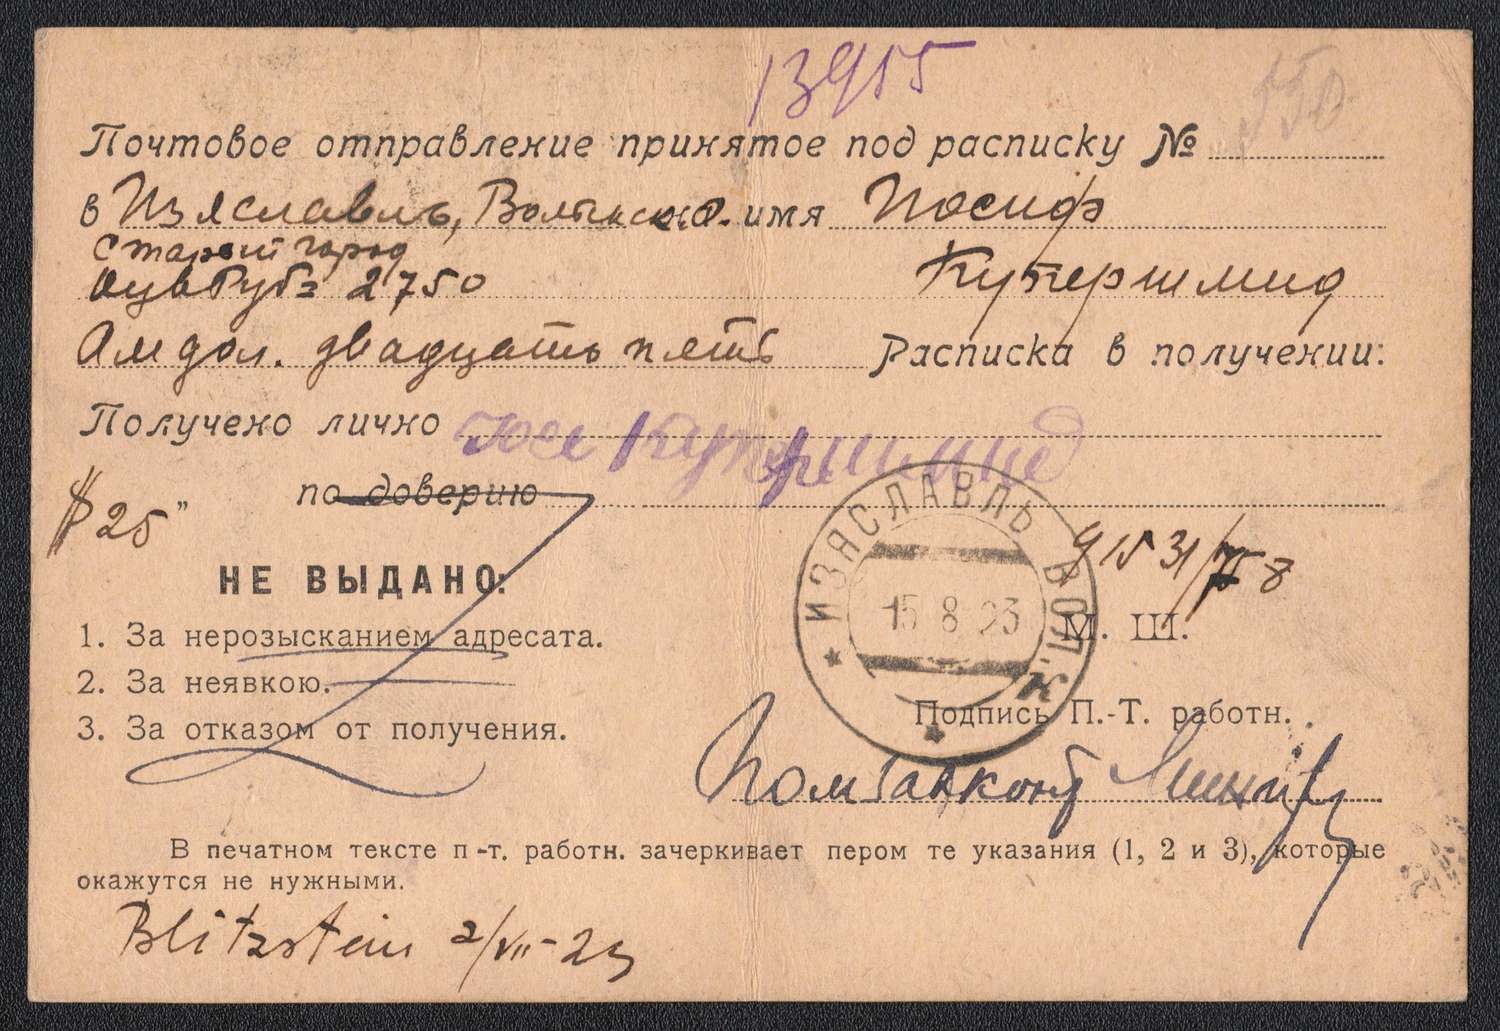 13955
550
Почтовое отправление принятое под расписку №
в Изяславль, Волынск. имя Иосиф
Старый город
2750 Купершмид
Ам дол. двадцать пять Расписка в получении:
Получено лично Купершмид
по доверию
$ 25"
НЕ ВЫДАНО:
1. За нерозысканием адресата.
2. За неявкою.
3. За отказом от получения.
ИЗЯСЛАВЛЬ ВОЛ.
15 8 23
М. Ш.
Подпись П.-Т. работн.
В печатном тексте п-т. работн. зачеркивает пером те указания (1, 2 и 3), которые
окажутся не нужными.
Blitzstein 2/VII-23